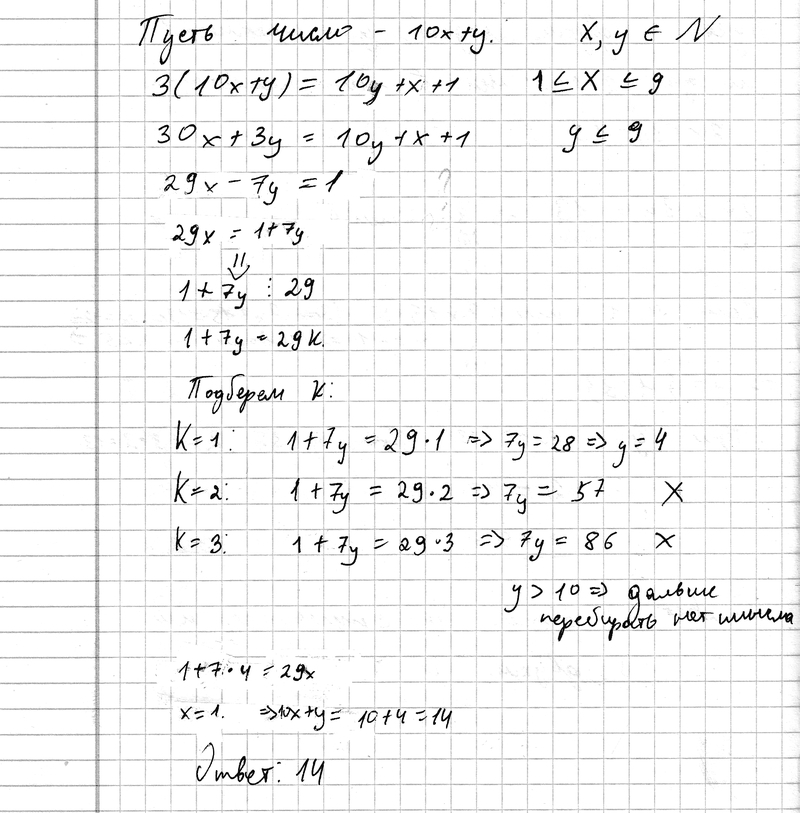 Пусть число - 10x+y. x, y ∈ N
3(10x+y) = 10y+x+1 1 ≤ x ≤ 9
30x+3y = 10y+x+1 y ≤ 9
29x-7y = 1 ?
29x = 1+7y
⇓
1+7y ⋮ 29
1+7y = 29K.
Подберем K:
K=1: 1+7y = 29·1 => 7y = 28 => y = 4
K=2: 1+7y = 29·2 => 7y = 57 X
K=3: 1+7y = 29·3 => 7y = 86 X
y > 10 => дальше
перебирать нет смысла
1+7·4 = 29x
x=1. =>10x+y = 10+4=14
Ответ: 14